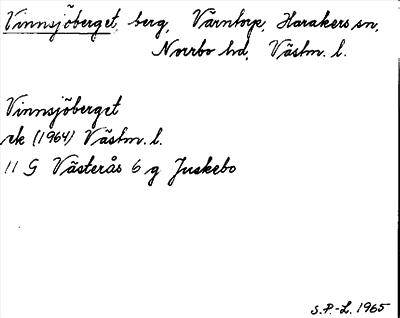 Vinnsjöberget, berg, Värntorp, Harakers sn,
Norrbo hd, Västm. l.
Vinnsjöberget
ek (1964) Västm. l.
11 G Västerås 6 g Juskebo
S.P.-L. 1965